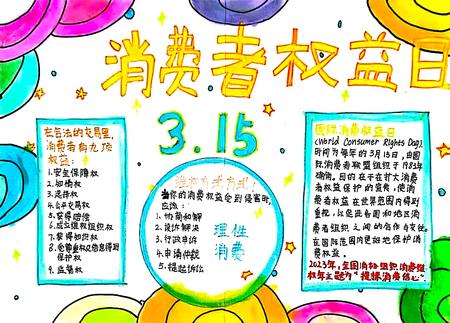 消费者权益日
3.15
在合法的交易里,
消费者有九项
权益:
1.安全保障权
2.知情权
3.选择权
4.公平交易权
5.获得赔偿
6.成立维权组织权
7.获得知识权
8.受尊重权及信息得到
保护权
9.监督权
维权方式方式!
当你的消费权益受到侵害时,
应该:
1.协商和解
2.投诉解决
3.行政申诉
4.申请仲裁
5.提起诉讼
理性
消费
国际消费者权益日
(World Consumer Rights Day),
时间为每年的3月15日,由国
际消费者联盟组织于1983年
确定。目的在于在扩大消费
者权益保护的宣传,使消
费者权益在世界范围内得到
重视,以促进各国和地区消
费者组织之间的合作与交往,
在国际范围内更好地保护消
费者权益。
2023年,全国消协组织消费维
权年主题为"提振消费信心"。